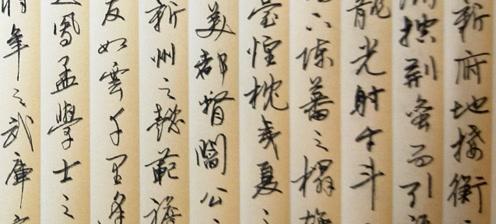 新府地接衡
控荊蠻而引
龍光射牛斗
下陳蕃之榻
臺隍枕夷夏之
美都督閻公
新州之懿範襜
友如雲千里逢
鳳孟學士之
將軍之武庫